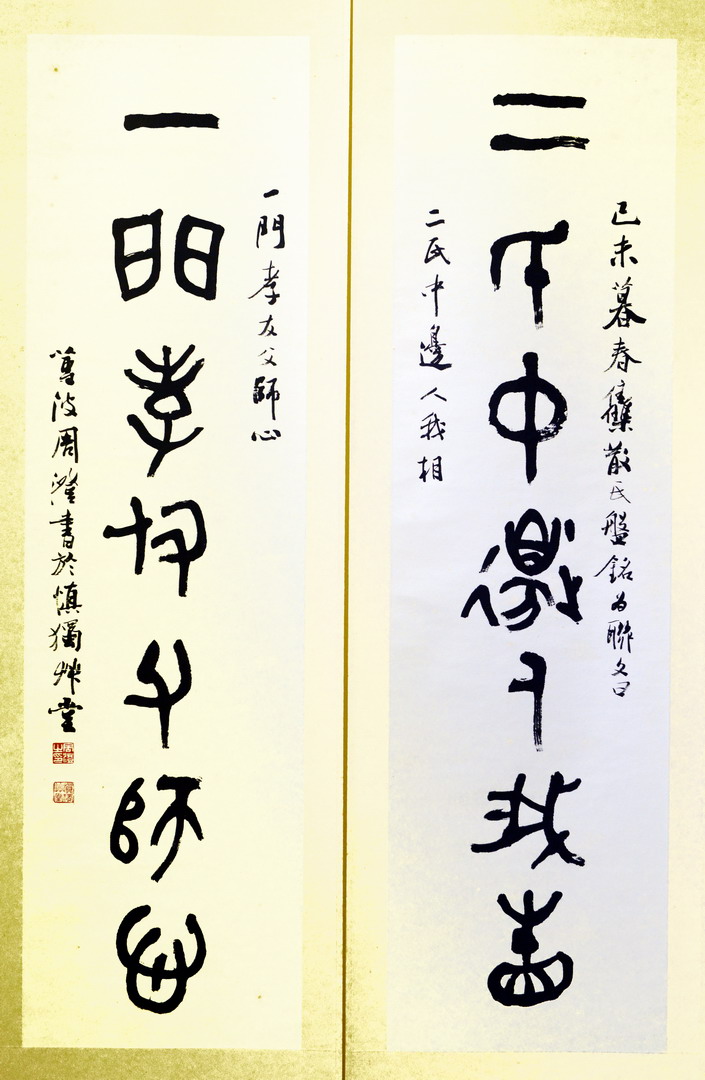 己未暮春雧散氏盤銘為聯文曰
二氏中邊人我相
二氏中邊人我相
一門孝友父師心
一門孝友父師心
蓴波周澄書於慎獨艸堂